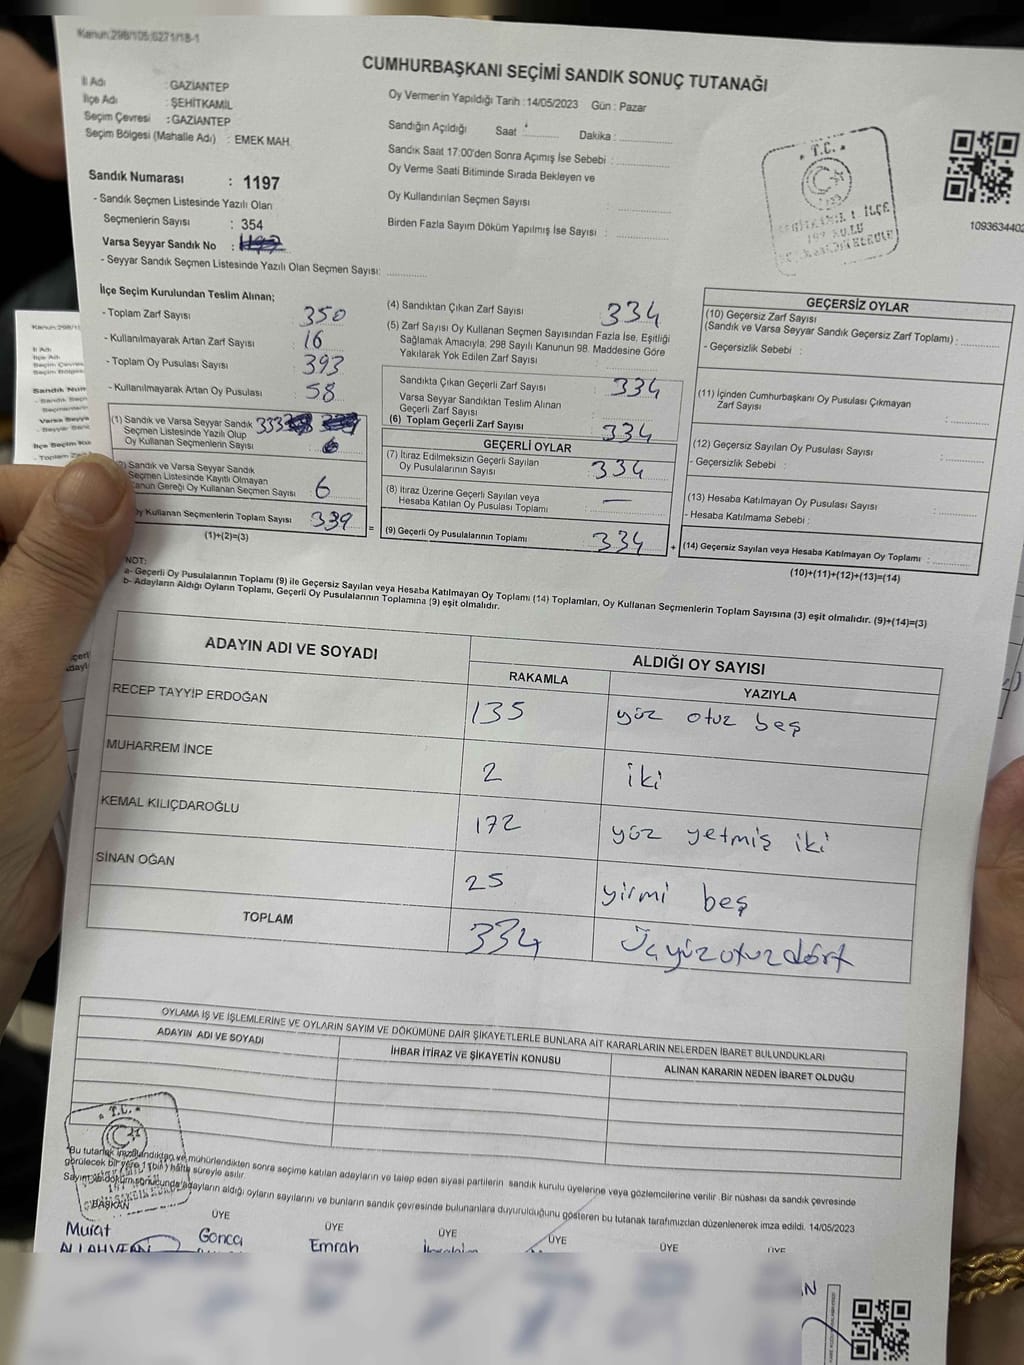 Kanun:298/105;6271/18-1
CUMHURBAŞKANI SEÇİMİ SANDIK SONUÇ TUTANAĞI
İl Adı : GAZİANTEP
İlçe Adı : ŞEHİTKAMİL
Seçim Çevresi : GAZİANTEP
Seçim Bölgesi (Mahalle Adı) : EMEK MAH.
Sandık Numarası : 1197
- Sandık Seçmen Listesinde Yazılı Olan
Seçmenlerin Sayısı : 354
Varsa Seyyar Sandık No :
- Seyyar Sandık Seçmen Listesinde Yazılı Olan Seçmen Sayısı: ............
Oy Vermenin Yapıldığı Tarih : 14/05/2023 Gün : Pazar
Sandığın Açıldığı Saat : ............ Dakika : ............
Sandık Saat 17:00'den Sonra Açımış İse Sebebi : ............
Oy Verme Saati Bitiminde Sırada Bekleyen ve
Oy Kullandırılan Seçmen Sayısı : ............
Birden Fazla Sayım Döküm Yapılmış İse Sayısı : ............
T.C.
1093634402
İlçe Seçim Kurulundan Teslim Alınan;
- Toplam Zarf Sayısı : 350
- Kullanılmayarak Artan Zarf Sayısı : 16
- Toplam Oy Pusulası Sayısı : 393
- Kullanılmayarak Artan Oy Pusulası : 58
(1) Sandık ve Varsa Seyyar Sandık 333
Seçmen Listesinde Yazılı Olup
Oy Kullanan Seçmenlerin Sayısı :
Sandık ve Varsa Seyyar Sandık
Seçmen Listesinde Kayıtlı Olmayan
Kanun Gereği Oy Kullanan Seçmen Sayısı : 6
Oy Kullanan Seçmenlerin Toplam Sayısı : 339
(1)+(2)=(3)
=
(4) Sandıktan Çıkan Zarf Sayısı : 334
(5) Zarf Sayısı Oy Kullanan Seçmen Sayısından Fazla İse, Eşitliği
Sağlamak Amacıyla, 298 Sayılı Kanunun 98. Maddesine Göre
Yakılarak Yok Edilen Zarf Sayısı : ............
Sandıkta Çıkan Geçerli Zarf Sayısı : 334
Varsa Seyyar Sandıktan Teslim Alınan
Geçerli Zarf Sayısı : ............
(6) Toplam Geçerli Zarf Sayısı : 334
GEÇERLİ OYLAR
(7) İtiraz Edilmeksizin Geçerli Sayılan
Oy Pusulalarının Sayısı : 334
(8) İtiraz Üzerine Geçerli Sayılan veya
Hesaba Katılan Oy Pusulası Toplamı : —
(9) Geçerli Oy Pusulalarının Toplamı : 334
+
GEÇERSİZ OYLAR
(10) Geçersiz Zarf Sayısı
(Sandık ve Varsa Seyyar Sandık Geçersiz Zarf Toplamı) : ............
- Geçersizlik Sebebi :
(11) İçinden Cumhurbaşkanı Oy Pusulası Çıkmayan
Zarf Sayısı : ............
(12) Geçersiz Sayılan Oy Pusulası Sayısı : ............
- Geçersizlik Sebebi :
(13) Hesaba Katılmayan Oy Pusulası Sayısı : ............
- Hesaba Katılmama Sebebi :
(14) Geçersiz Sayılan veya Hesaba Katılmayan Oy Toplamı : ............
(10)+(11)+(12)+(13)=(14)
NOT:
a- Geçerli Oy Pusulalarının Toplamı (9) ile Geçersiz Sayılan veya Hesaba Katılmayan Oy Toplamı (14) Toplamları, Oy Kullanan Seçmenlerin Toplam Sayısına (3) eşit olmalıdır. (9)+(14)=(3)
b- Adayların Aldığı Oyların Toplamı, Geçerli Oy Pusulalarının Toplamına (9) eşit olmalıdır.
ADAYIN ADI VE SOYADI ALDIĞI OY SAYISI
RAKAMLA YAZIYLA
RECEP TAYYİP ERDOĞAN 135 yüz otuz beş
MUHARREM İNCE 2 iki
KEMAL KILIÇDAROĞLU 172 yüz yetmiş iki
SİNAN OĞAN 25 yirmi beş
TOPLAM 334 Üçyüzotuzdört
OYLAMA İŞ VE İŞLEMLERİNE VE OYLARIN SAYIM VE DÖKÜMÜNE DAİR ŞİKAYETLERLE BUNLARA AİT KARARLARIN NELERDEN İBARET BULUNDUKLARI
ADAYIN ADI VE SOYADI İHBAR İTİRAZ VE ŞİKAYETİN KONUSU ALINAN KARARIN NEDEN İBARET OLDUĞU
T.C.
*Bu tutanak imzalandıktan ve mühürlendikten sonra seçime katılan adayların ve talep eden siyasi partilerin sandık kurulu üyelerine veya gözlemcilerine verilir. Bir nüshası da sandık çevresinde
görülecek bir yere 1 (bir) hafta süreyle asılır.
Sayım ve döküm sonucunda adayların aldığı oyların sayılarını ve bunların sandık çevresinde bulunanlara duyurulduğunu gösteren bu tutanak tarafımızdan düzenlenerek imza edildi. 14/05/2023
BAŞKAN ÜYE ÜYE ÜYE ÜYE ÜYE ÜYE
Murat Gonca Emrah